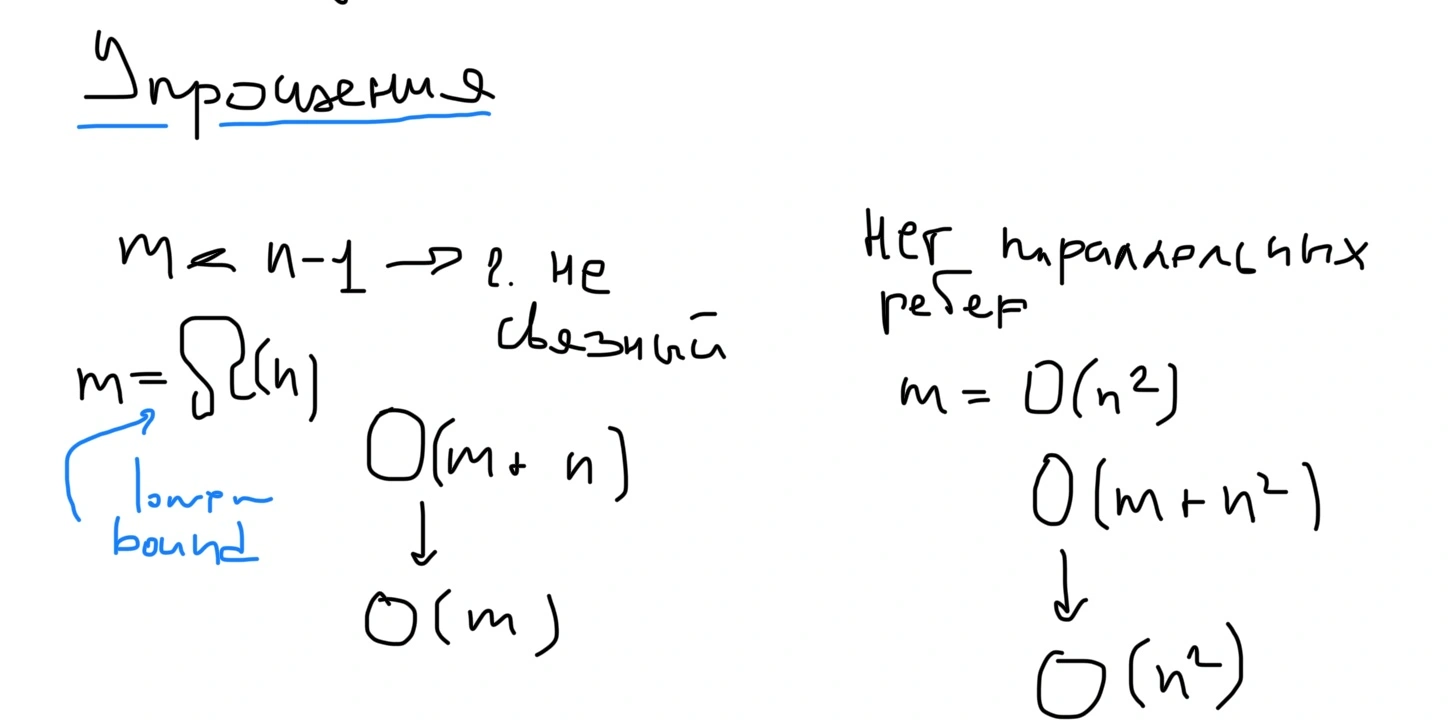 Упрощения
m < n-1 → г. не
связный
m = Ω(n)
lower
bound
O(m + n)
↓
O(m)
Нет параллельных
ребер
m = O(n²)
O(m + n²)
↓
O(n²)